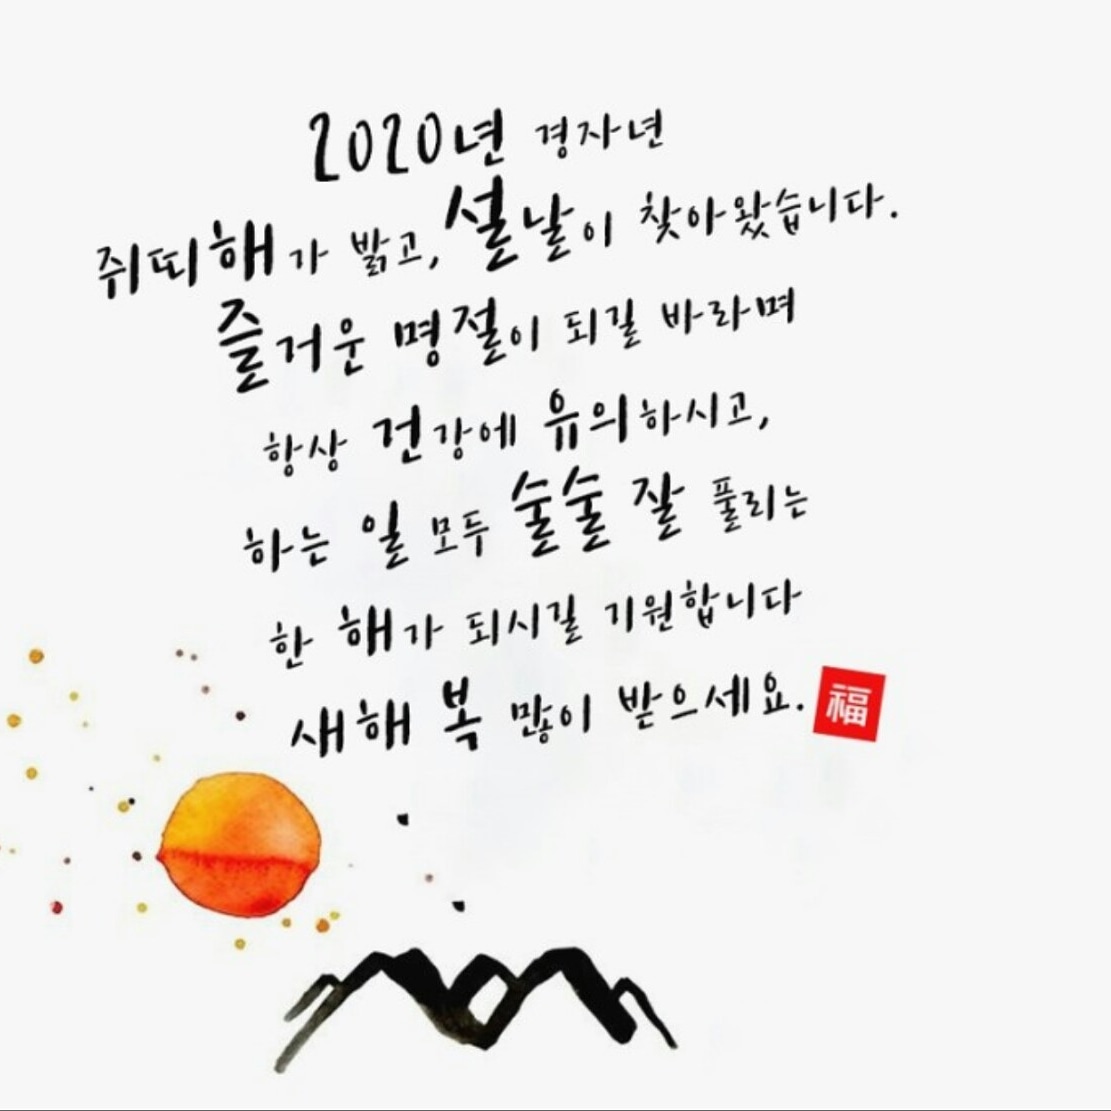 2020년 경자년
쥐띠해가 밝고, 설날이 찾아왔습니다.
즐거운 명절이 되길 바라며
항상 건강에 유의하시고,
하는 일 모두 술술 잘 풀리는
한 해가 되시길 기원합니다
새해 복 많이 받으세요. 福